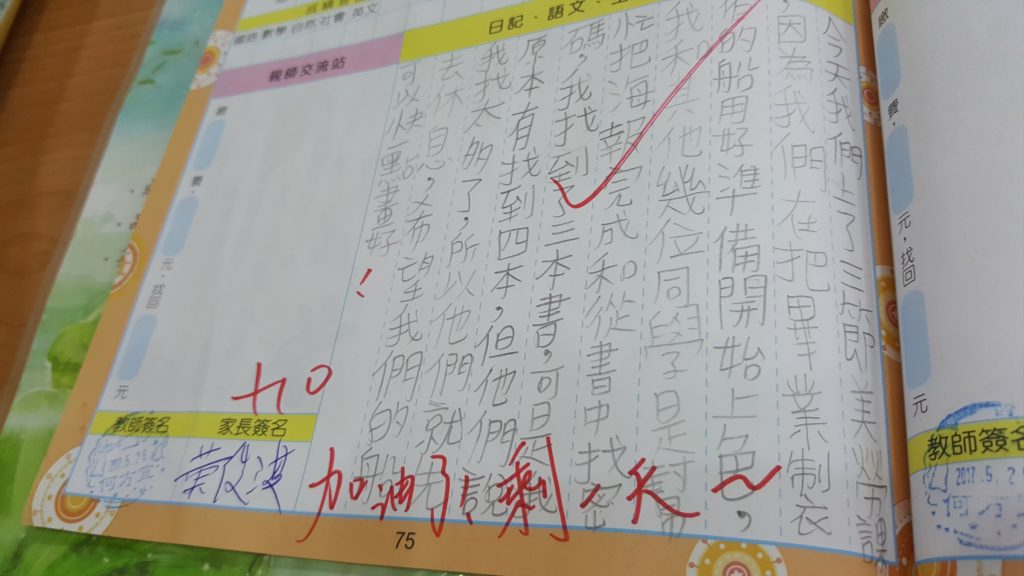 國語 數學 自然 社會 英文
日記、語文、
親師交流站
今天我們上了三節美勞課
,因為我們在把畢業制衣
的船用好準備開始上色,
我和其他幾位同學是討
把海報完成和從書中找密
碼,我找到了三本書,可是
原本有找到四本,但他們說
我找太多了,所以他們就
去休息,又布望我們的船
可以快一點畫好!
元,找回
元
元,找回
元
+10
教師簽名
家長簽名
加油了!剩1天~
75
教師簽名
2017.5.2